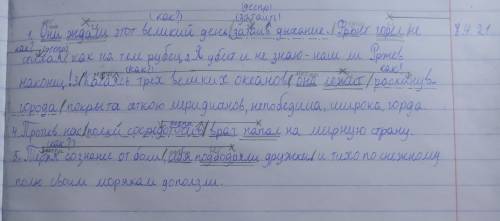 (как?) (деепр)
(затаить)
1. Они ждали этот великий день, затаив дыхание. 2. Фронт горел не 7.11.21
стихая, как на том рубец. Я убеит и не знаю - наш ли Ржев
наконец! 3. На глазах трех великих океанов, она лежит, раскинув
города, покрыта сеткою меридианов, непобедима, широка, горда.
4. Против нас полки сосредоточив, враг напал на мирную страну.
5. Теряя сознание от боли, еле подбодряли дружки, и тихо по снежному
полю своим морякам доползли.